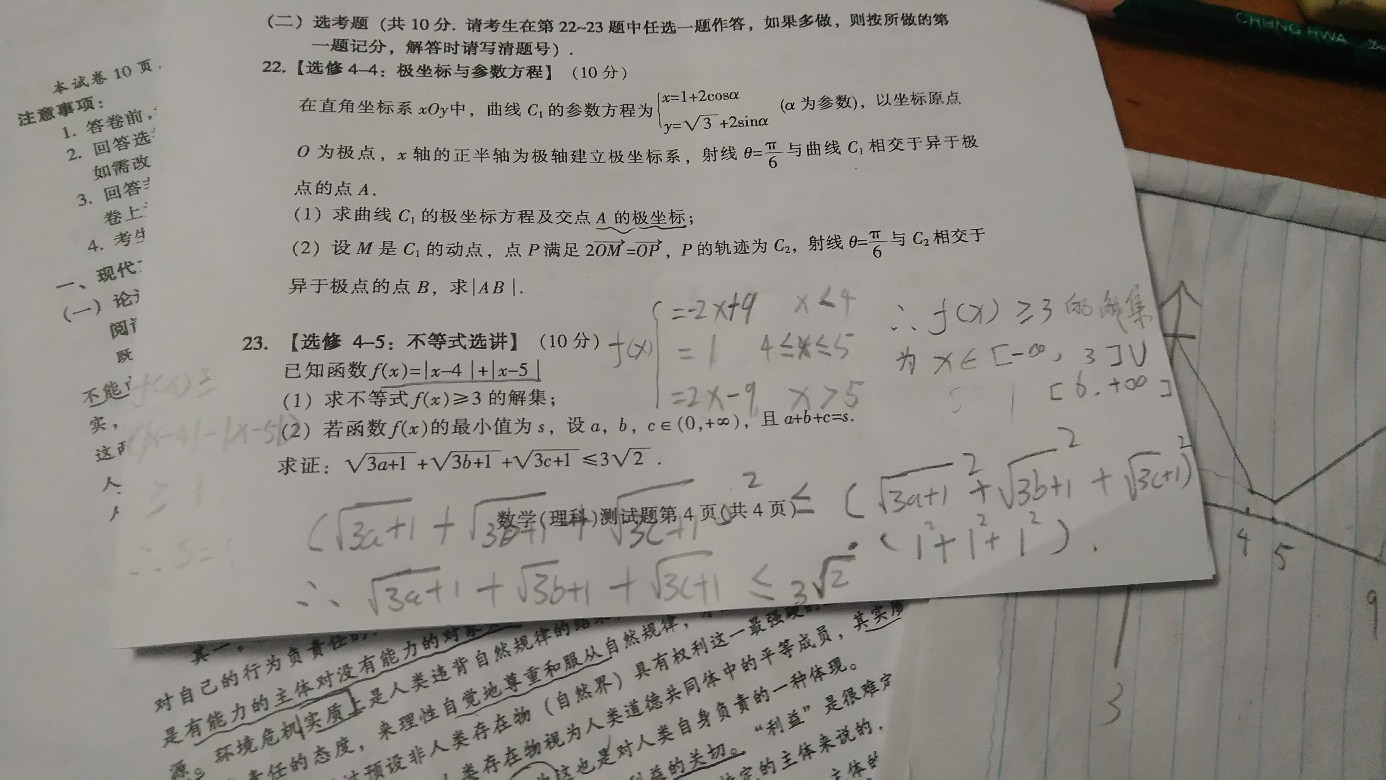 CHUNG HWA
(二) 选考题 (共 10 分. 请考生在第 22~23 题中任选一题作答, 如果多做, 则按所做的第
一题记分, 解答时请写清题号).
22.【选修 4-4: 极坐标与参数方程】(10 分)
在直角坐标系 xOy中, 曲线 C₁ 的参数方程为{x=1+2cosα y=√3+2sinα (α 为参数), 以坐标原点
O 为极点, x 轴的正半轴为极轴建立极坐标系, 射线 θ=π/6 与曲线 C₁ 相交于异于极
点的点 A.
(1) 求曲线 C₁ 的极坐标方程及交点 A 的极坐标;
(2) 设 M 是 C₁ 的动点, 点 P 满足 2OM→=OP→, P 的轨迹为 C₂, 射线 θ=π/6 与 C₂ 相交于
异于极点的点 B, 求|AB|.
23. 【选修 4-5: 不等式选讲】(10 分)
已知函数f(x)=|x-4|+|x-5|
(1) 求不等式 f(x)≥3 的解集;
(2) 若函数 f(x)的最小值为 s, 设 a, b, c∈(0,+∞), 且 a+b+c=s.
求证: √3a+1 +√3b+1 +√3c+1 ≤3√2 .
数学(理科)测试题第 4 页(共 4 页)
f(x) { =-2x+9 x<4
=1 4≤x≤5
=2x-9 x>5
∴ f(x)≥3 的解集
为 x∈[-∞, 3]∪
[6. +∞]
(√3a+1 + √3b+1 + √3c+1)² ≤ (√3a+1² + √3b+1² + √3c+1²)
·(1²+1²+1²).
∴ √3a+1 + √3b+1 + √3c+1 ≤ 3√2.
本试卷 10 页.
注意事项:
1. 答卷前,
2. 回答选
如需改
3. 回答
卷上
4. 考生
一、现代
(一) 论
阅
既
不能
实,
这
人
4 5
9
3
对自己的行为负责任的
是有能力的主体对没有能力的对象
源。环境危机实质上是人类违背自然规律的结果
责任的态度, 来理性自觉地尊重和服从自然规律,
预设非人类存在物 (自然界) 具有权利这一最强
类存在物视为人类道德共同体中的平等成员, 其实质
这也是对人类自身负责的一种体现。
利益的关切。“利益” 是很难定
定的主体来说的,
主体的